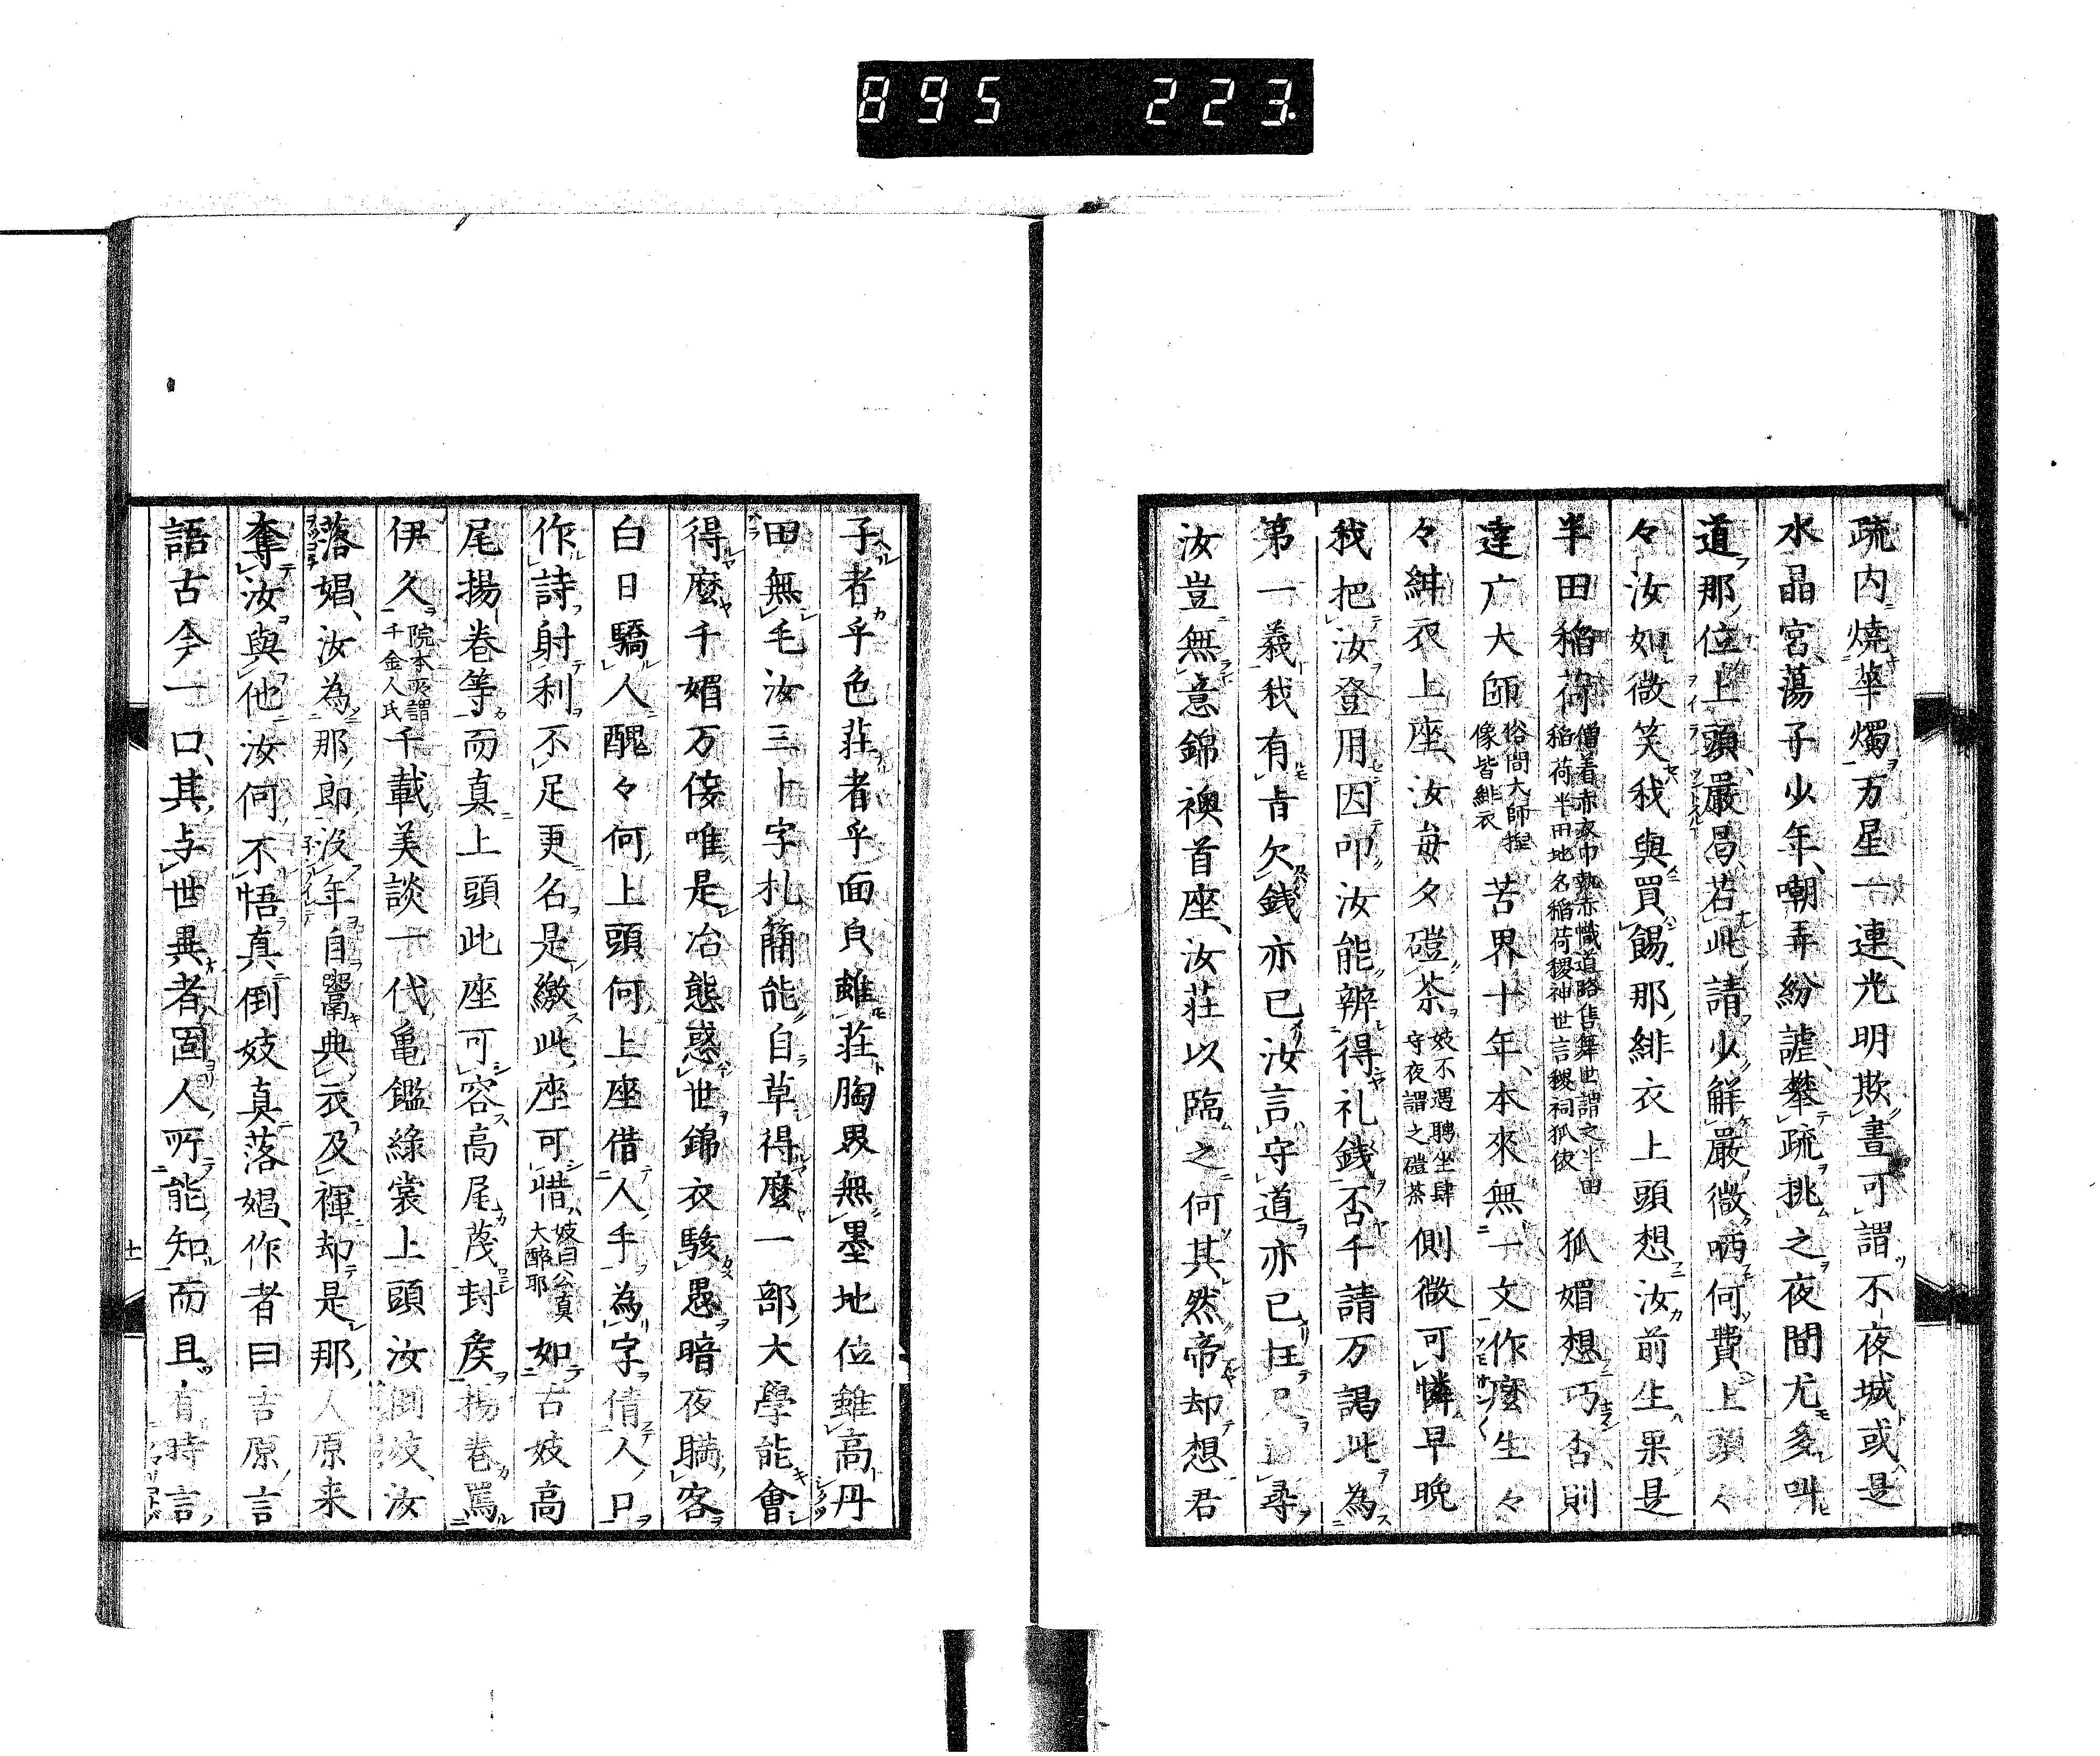 895 223
疏内燒華燭万星一連光明欺晝可謂不夜城或是
水晶宮蕩子少年嘲弄紛謔攀疏挑之夜間尤多叫
道那位上頭嚴曷若此請少解嚴微哂何費上頭々
々汝如微笑我與買餳那緋衣上頭想汝前生果是
半田稲荷僧着赤衣巾執赤幟道路售舞世謂之半田稲荷半田地名稲荷稷神世言稷祠狐依狐媚想巧否則
達广大師俗間大師捏像皆緋衣苦界十年本來無一文作麼生々
々緋衣上座汝毎夕磑茶妓不遇聘坐肆守夜謂之磑茶側微可憐早晩
我把汝登用因叩汝能辨得礼銭否千請万謁此為
第一義我有旹欠銭亦已汝言守道亦已枉尺尋
汝豈無意錦襖首座汝荘以臨之何其然帝却想君
子者乎色荘者乎面皃雖荘胸界無墨地位雖高丹
田無毛汝三十字札簡能自草得麼一部大學能會
得麼千媚万倭唯是冶態惑世錦衣駭愚暗夜瞞客
白日驕人醜々何上頭何上座借人手為字倩人口
作詩射利不足更名是繳此座可惜妓曰公真大酔耶如古妓高
尾揚巻等而真上頭此座可容高尾茂封矦揚巻罵
伊久院本所謂千金人氏千載美談一代亀鑑綠裳上頭汝倒妓汝
落娼汝為那郎沒年自鬻典衣及褌却是那人原来
奪汝與他汝何不悟真倒妓真落娼作者曰吉原言
語古今一口其与世異者固人所能知而且有時言
十